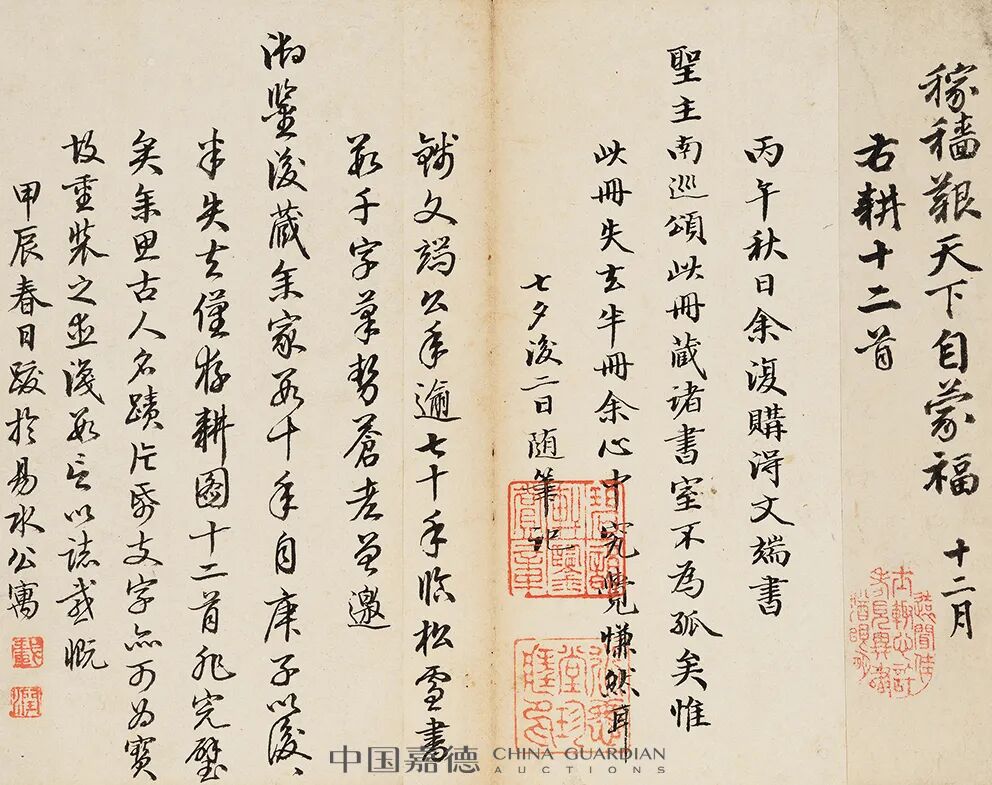 稼穡艱天下自蒙福 十二月
右耕十二首
丙午秋日余復購得文端書
聖主南巡頌此冊藏諸書室不為孤矣惟
此冊失去半冊余心中究覺慊然耳
七夕後二日随筆記
錢文端公年逾七十手臨松雪書
數千字筆勢蒼老曾邀
御鑒後藏余家數十年自庚子以後
半失去僅存耕圖十二首非完璧
矣余思古人名蹟片紙支字亦可為寶
故重裝之並識數言以誌感慨
甲辰春日跋於易水公寓
中国嘉德 CHINA GUARDIAN
AUCTIONS